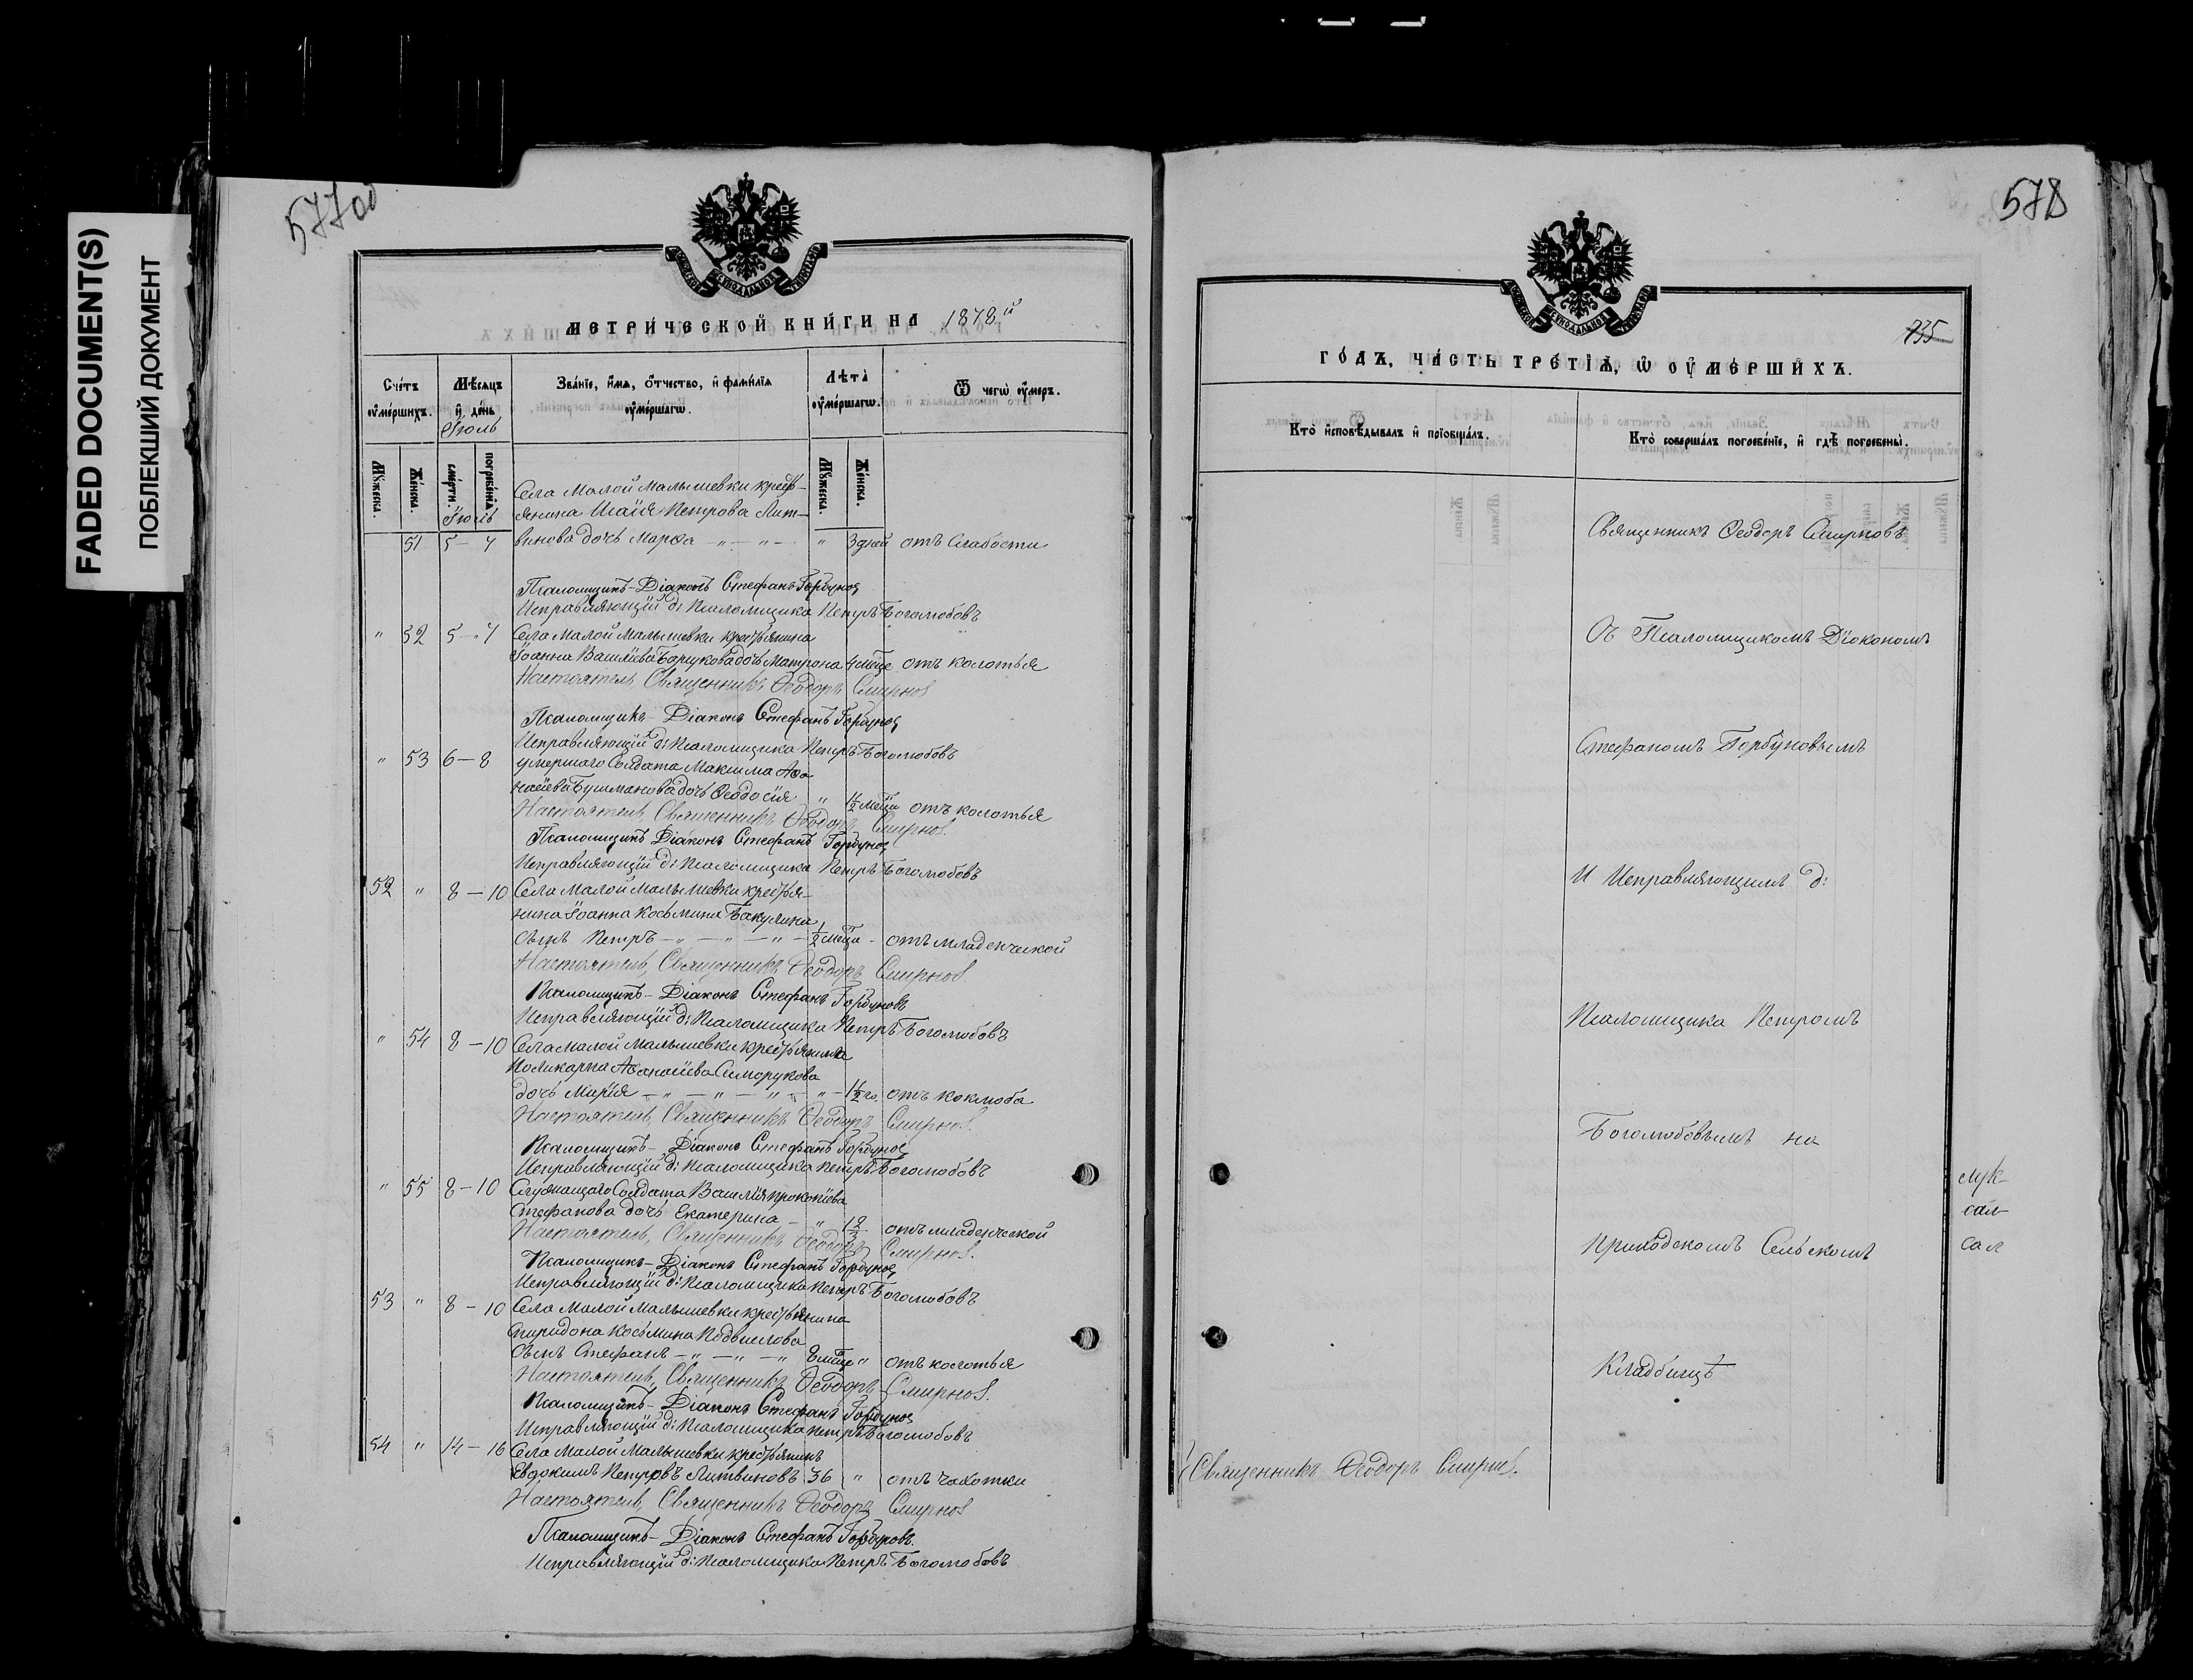 FADED DOCUMENT(S)
ПОБЛЕКШИЙ ДОКУМЕНТ
577об
МЕТРИ́ЧЕСКОЙ КНИ́ГИ НА 1878й
Сче́тъ ᲂу҆ме́ршихъ.
Мѣ́сяцъ и҆ де́нь
Іюль
Зва́нїе, и҆́мѧ, ѻ҆́тчество, и҆ фамѝлїѧ ᲂу҆ме́ршагѡ.
Лѣ̀та ᲂу҆ме́ршагѡ.
Ѿ чегѡ̀ ᲂу҆́меръ.
Мꙋ́жеска.
Же́нска.
сме́рти.
погребе́нїѧ.
Мꙋ́жеска.
Же́нска.
Іюль
Села Малой Малышевки кресть-
янина Исаія Петрова Лит-
51 5 - 7 винова дочь Марѳа - " - " - " 3 дней отъ Слабости
Псаломщикъ-Діаконъ Стефанъ Горбунов
Исправляющій д: псаломщика Петръ Боголюбовъ
" 52 5 - 7 Села Малой Малышевки крестьянина
Іоанна Васильева дочь Матрона 4 мѣсце отъ колотья
Настоятель, Священникъ Ѳеодоръ Смирнов
Псаломщикъ- Діаконъ Стефанъ Горбунов
Исправляющій д: псаломщика Петръ Боголюбовъ
" 53 6 - 8 умершаго Солдата Максима Аѳа
насіева Бушманова дочь Ѳеодосія " 1½ мѣсца отъ колотья
Настоятель, Священникъ Ѳеодоръ Смирнов.
Псаломщикъ Діаконъ Стефанъ Горбунов
Исправляющій д: псаломщика Петръ Боголюбовъ
52 " 8 - 10 Села Малой Малышевки крестья-
нина Іоанна Косьмина Бакулина
сынъ Петръ - " - " - " - ½ мѣсца - отъ младенческой
Настоятель, Священникъ Ѳеодоръ Смирнов.
Псаломщикъ- Діаконъ Стефанъ Горбуновъ
Исправляющій д: псаломщика Петръ Боголюбовъ
" 54 8 - 10 Села Малой Малышевки крестьянина
Поликарпа Аѳанасіева Саморукова
дочь Марія - " - " - " - " - 1½ го. отъ коклюба
Настоятель, Священникъ Ѳеодоръ Смирнов.
Псаломщикъ- Діаконъ Стефанъ Горбунов
Исправляющій д: псаломщика Петръ Боголюбовъ
" 55 8 - 10 Служащаго Солдата Василія Прокопіева
Стефанова дочь Екатерина - " отъ младенческой
Настоятель, Священникъ Ѳеодоръ Смирнов.
Псаломщикъ- Діаконъ Стефанъ Горбунов
Исправляющій д: псаломщика Петръ Боголюбовъ
53 " 8 - 10 Села Малой Малышевки крестьянина
Спиридона Косьмина
сынъ Стефанъ - " - " - " 8 мѣсце " отъ колотья
Настоятель, Священникъ Ѳеодоръ Смирнов.
Псаломщикъ- Діаконъ Стефанъ Горбунов
Исправляющій д: псаломщика Петръ Боголюбовъ
54 " 14 - 16 Села Малой Малышевки крестьянинъ
Евдокимъ Петровъ Литвиновъ 36 " отъ чахотки
Настоятель, Священникъ Ѳеодоръ Смирнов
Псаломщикъ- Діаконъ Стефанъ Горбуновъ.
Исправляющій д: псаломщика Петръ Боголюбовъ
578
735
ГО́ДЪ, ЧА́СТЬ ТРЕ́ТЇѦ, Ѡ҆ ᲂУ҆МЕ́РШИХЪ.
Кто̀ и҆сповѣ́дывалъ и҆ прїѡбща́лъ.
Кто̀ соверша́лъ погребе́нїе, и҆ гдѣ̀ погребены̀.
Священникъ Ѳеодоръ Смирновъ
Съ Псаломщикомъ Діокономъ
Стефаномъ Горбуновымъ
И Исправляющимъ д:
Псаломщика Петромъ
Боголюбовымъ на
приходскомъ Сельскомъ
Кладбищѣ
Священникъ Ѳеодоръ Смирнов.